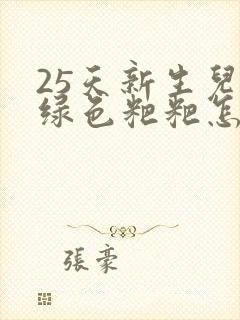 25天新生兒
绿色粑粑怎
張豪